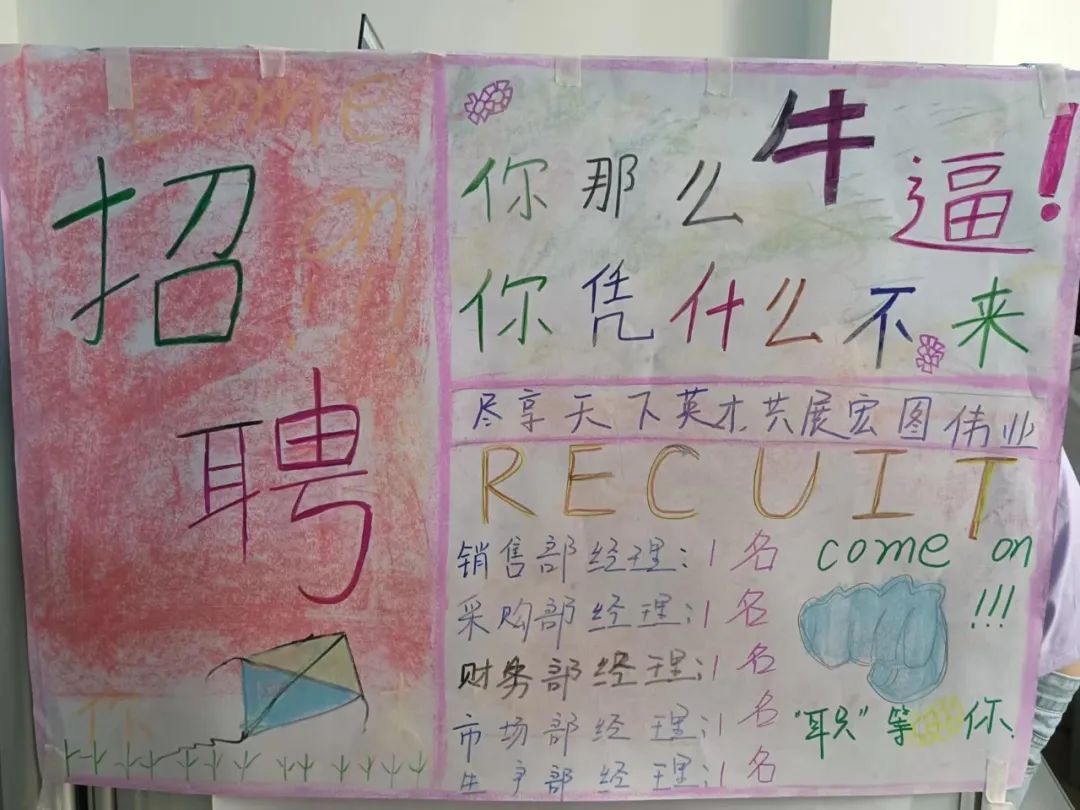 come
on
!!!
招
聘
你
你那么牛逼!
你凭什么不来
尽享天下英才共展宏图伟业
RECUIT
销售部经理:1名
采购部经理:1名
财务部经理:1名
市场部经理:1名
生产部经理:1名
come on
!!!
"职"等你